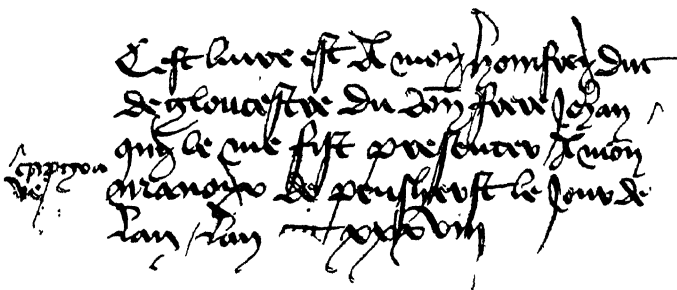 Cest livre est A moy homfrey duc
de gloucestre Du don frere Jehan
qui le me fist presenter A mon
manoir de pensherst le Jour de
lan lan xxxviii